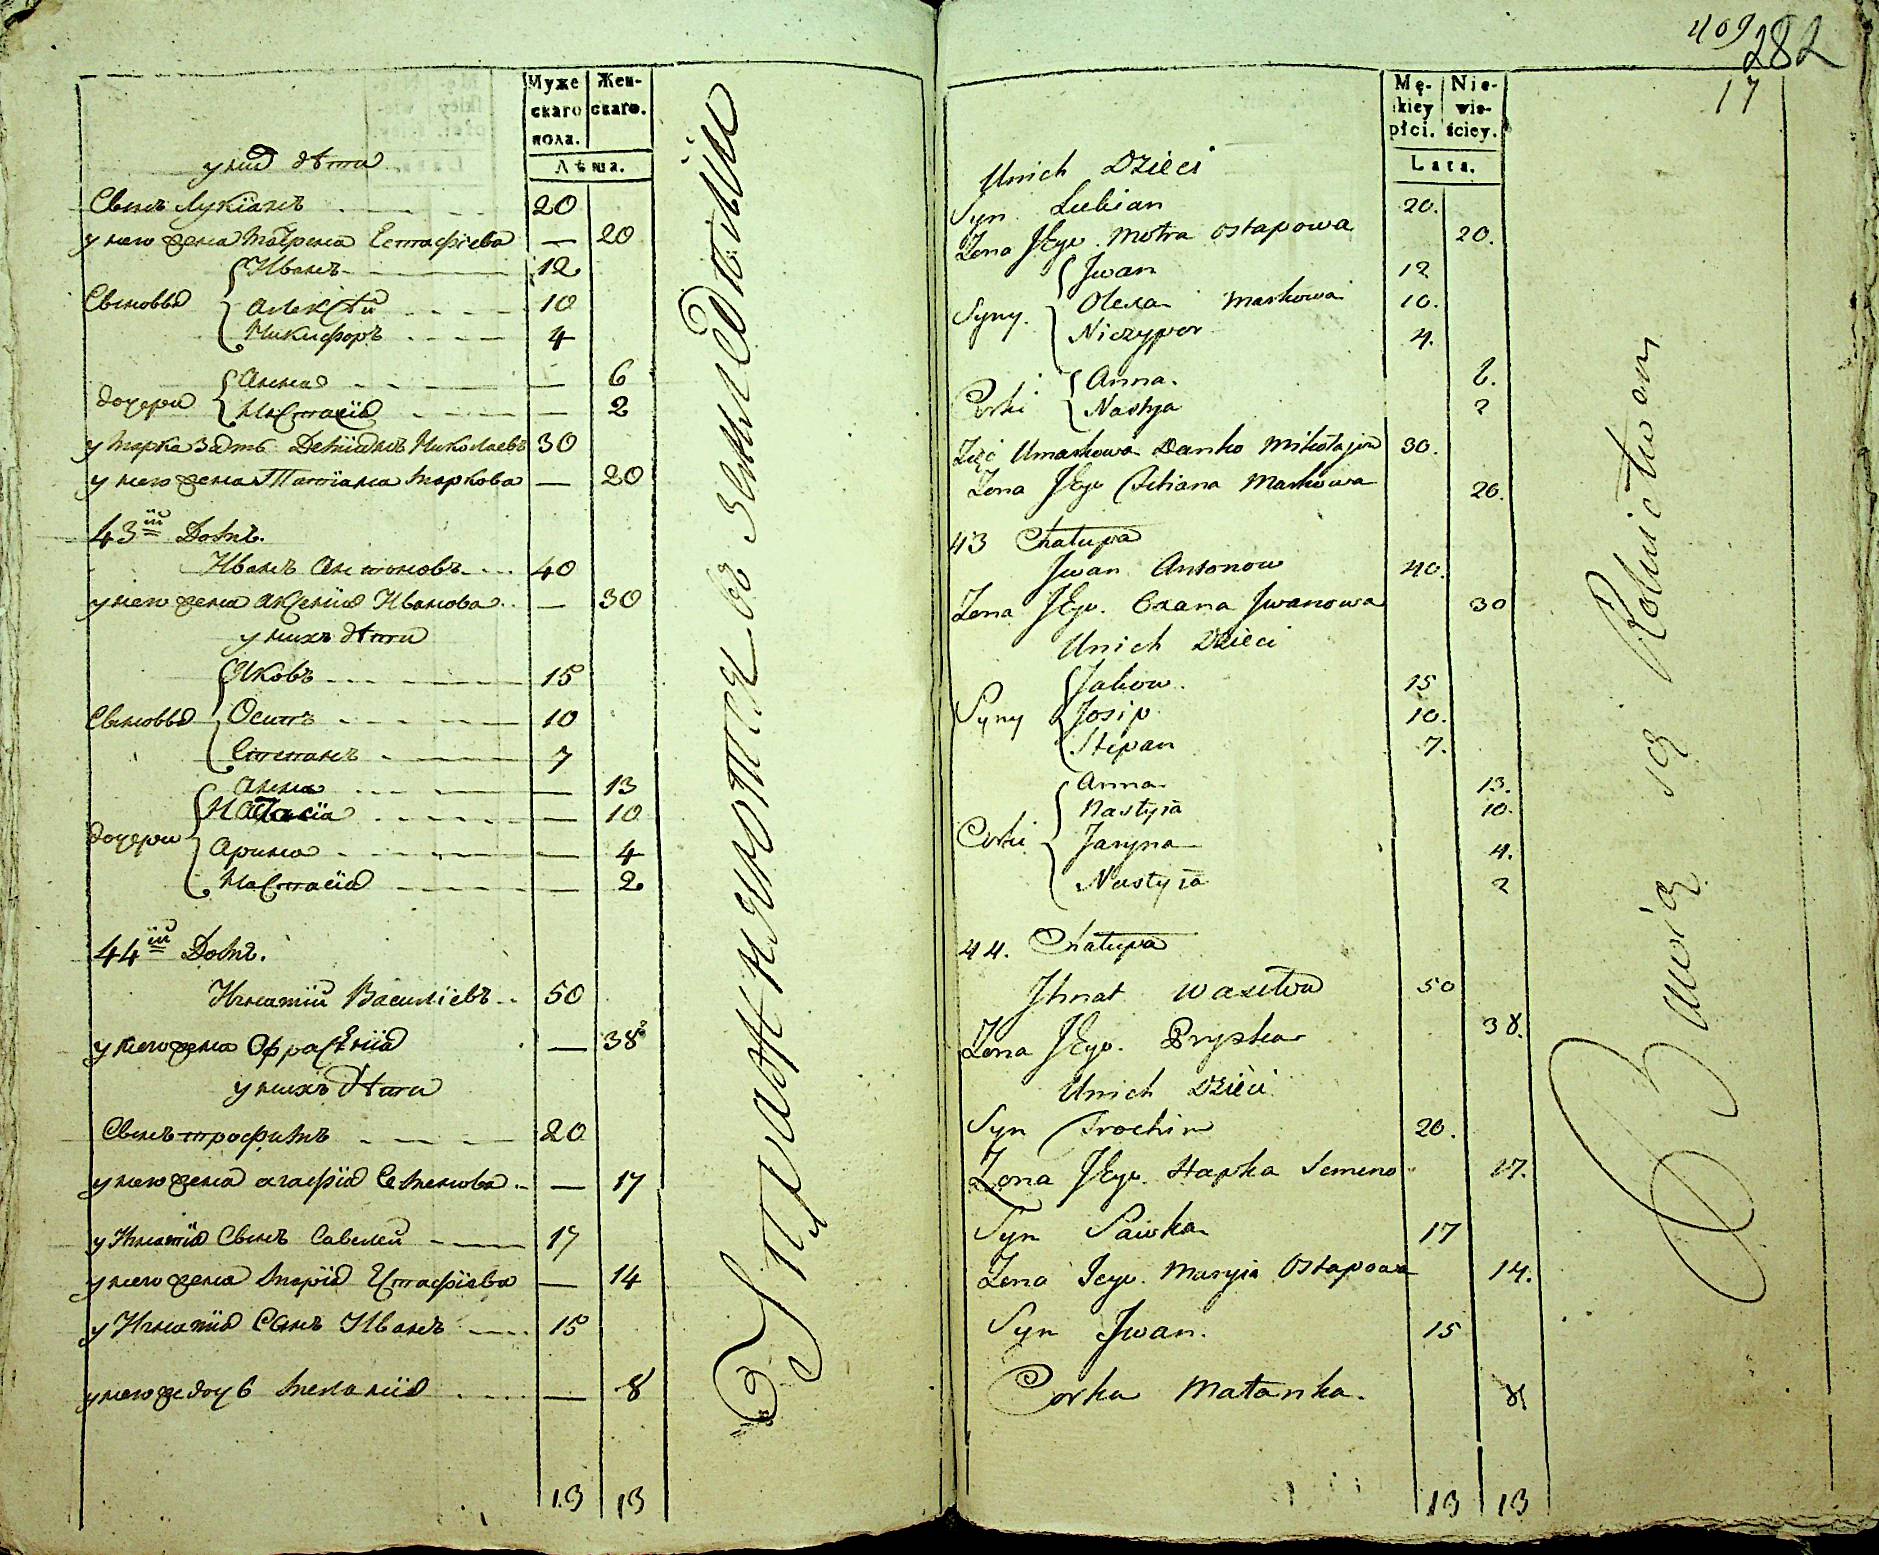 Муже
скаго
пола.
Жен-
скаго.
Лѣта.
у нихъ дѣти
Сынъ Лукіанъ 20
у него жена Матрена Естафіева — 20
Сыновья
Иванъ 12
Алексѣй 10
Никифоръ 4
дочери
Анна — 6
Настасія — 2
у Марка зять Демянъ Николаевъ 30
у него жена Татіана Маркова — 20
43й Домъ.
Иванъ Антоновъ 40
у него жена Аксенія Иванова — 30
у нихъ дѣти
Сыновья
Яковъ 15
Осипъ 10
Степанъ 7
дочери
Анна — 13
Настасіа — 10
Арина — 4
Настасіа — 2
44й Домъ.
Игнатій Василіевъ 50
у него жена Офрасѣнія — 38
у нихъ дѣти
Сынъ трофимъ 20
у него жена агафія Семенова — 17
у Игнатія Сынъ Савелей 17
у него жена Марія Естафіева — 14
у Игнатія Сынъ Иванъ 15
у него же дочь Меланія — 8
13 13
Упражняются въ земледѣліи
409
282
17
Mę-
kiey
płci.
Nie-
wie-
ściey.
Lata.
Unich Dzieci
Syn Lukian 20.
Zona Jego. Motra Ostapowa 20.
Syny.
Jwan 12
Olexa Markowa 10.
Niczypor 4.
Corki
Anna. 6.
Nastya 2
Zięć Umarkowa Danko Mikołajow 30.
Zona Jego Tetiana Markowa 20.
43 Chałupa
Jwan Antonow 40.
Zona Jego. Oxana Jwanowa 30
Unich Dzieci
Syny
Jakow. 15
Josip 10.
Stepan 7.
Corki
Anna 13.
Nastyia 10.
Jaryna 4.
Nastyia 2
44. Chałupa
Jhnat Wasilow 50
Zona Jego. Pryska 38.
Unich Dzieci
Syn Trochim 20.
Zona Jego. Hapka Semeno 17.
Syn Sawka 17
Zona Jego. Maryia Ostapowa 14.
Syn Jwan. 15
Corka Małanka. 8
13 13
Bawią się Rolnictwem